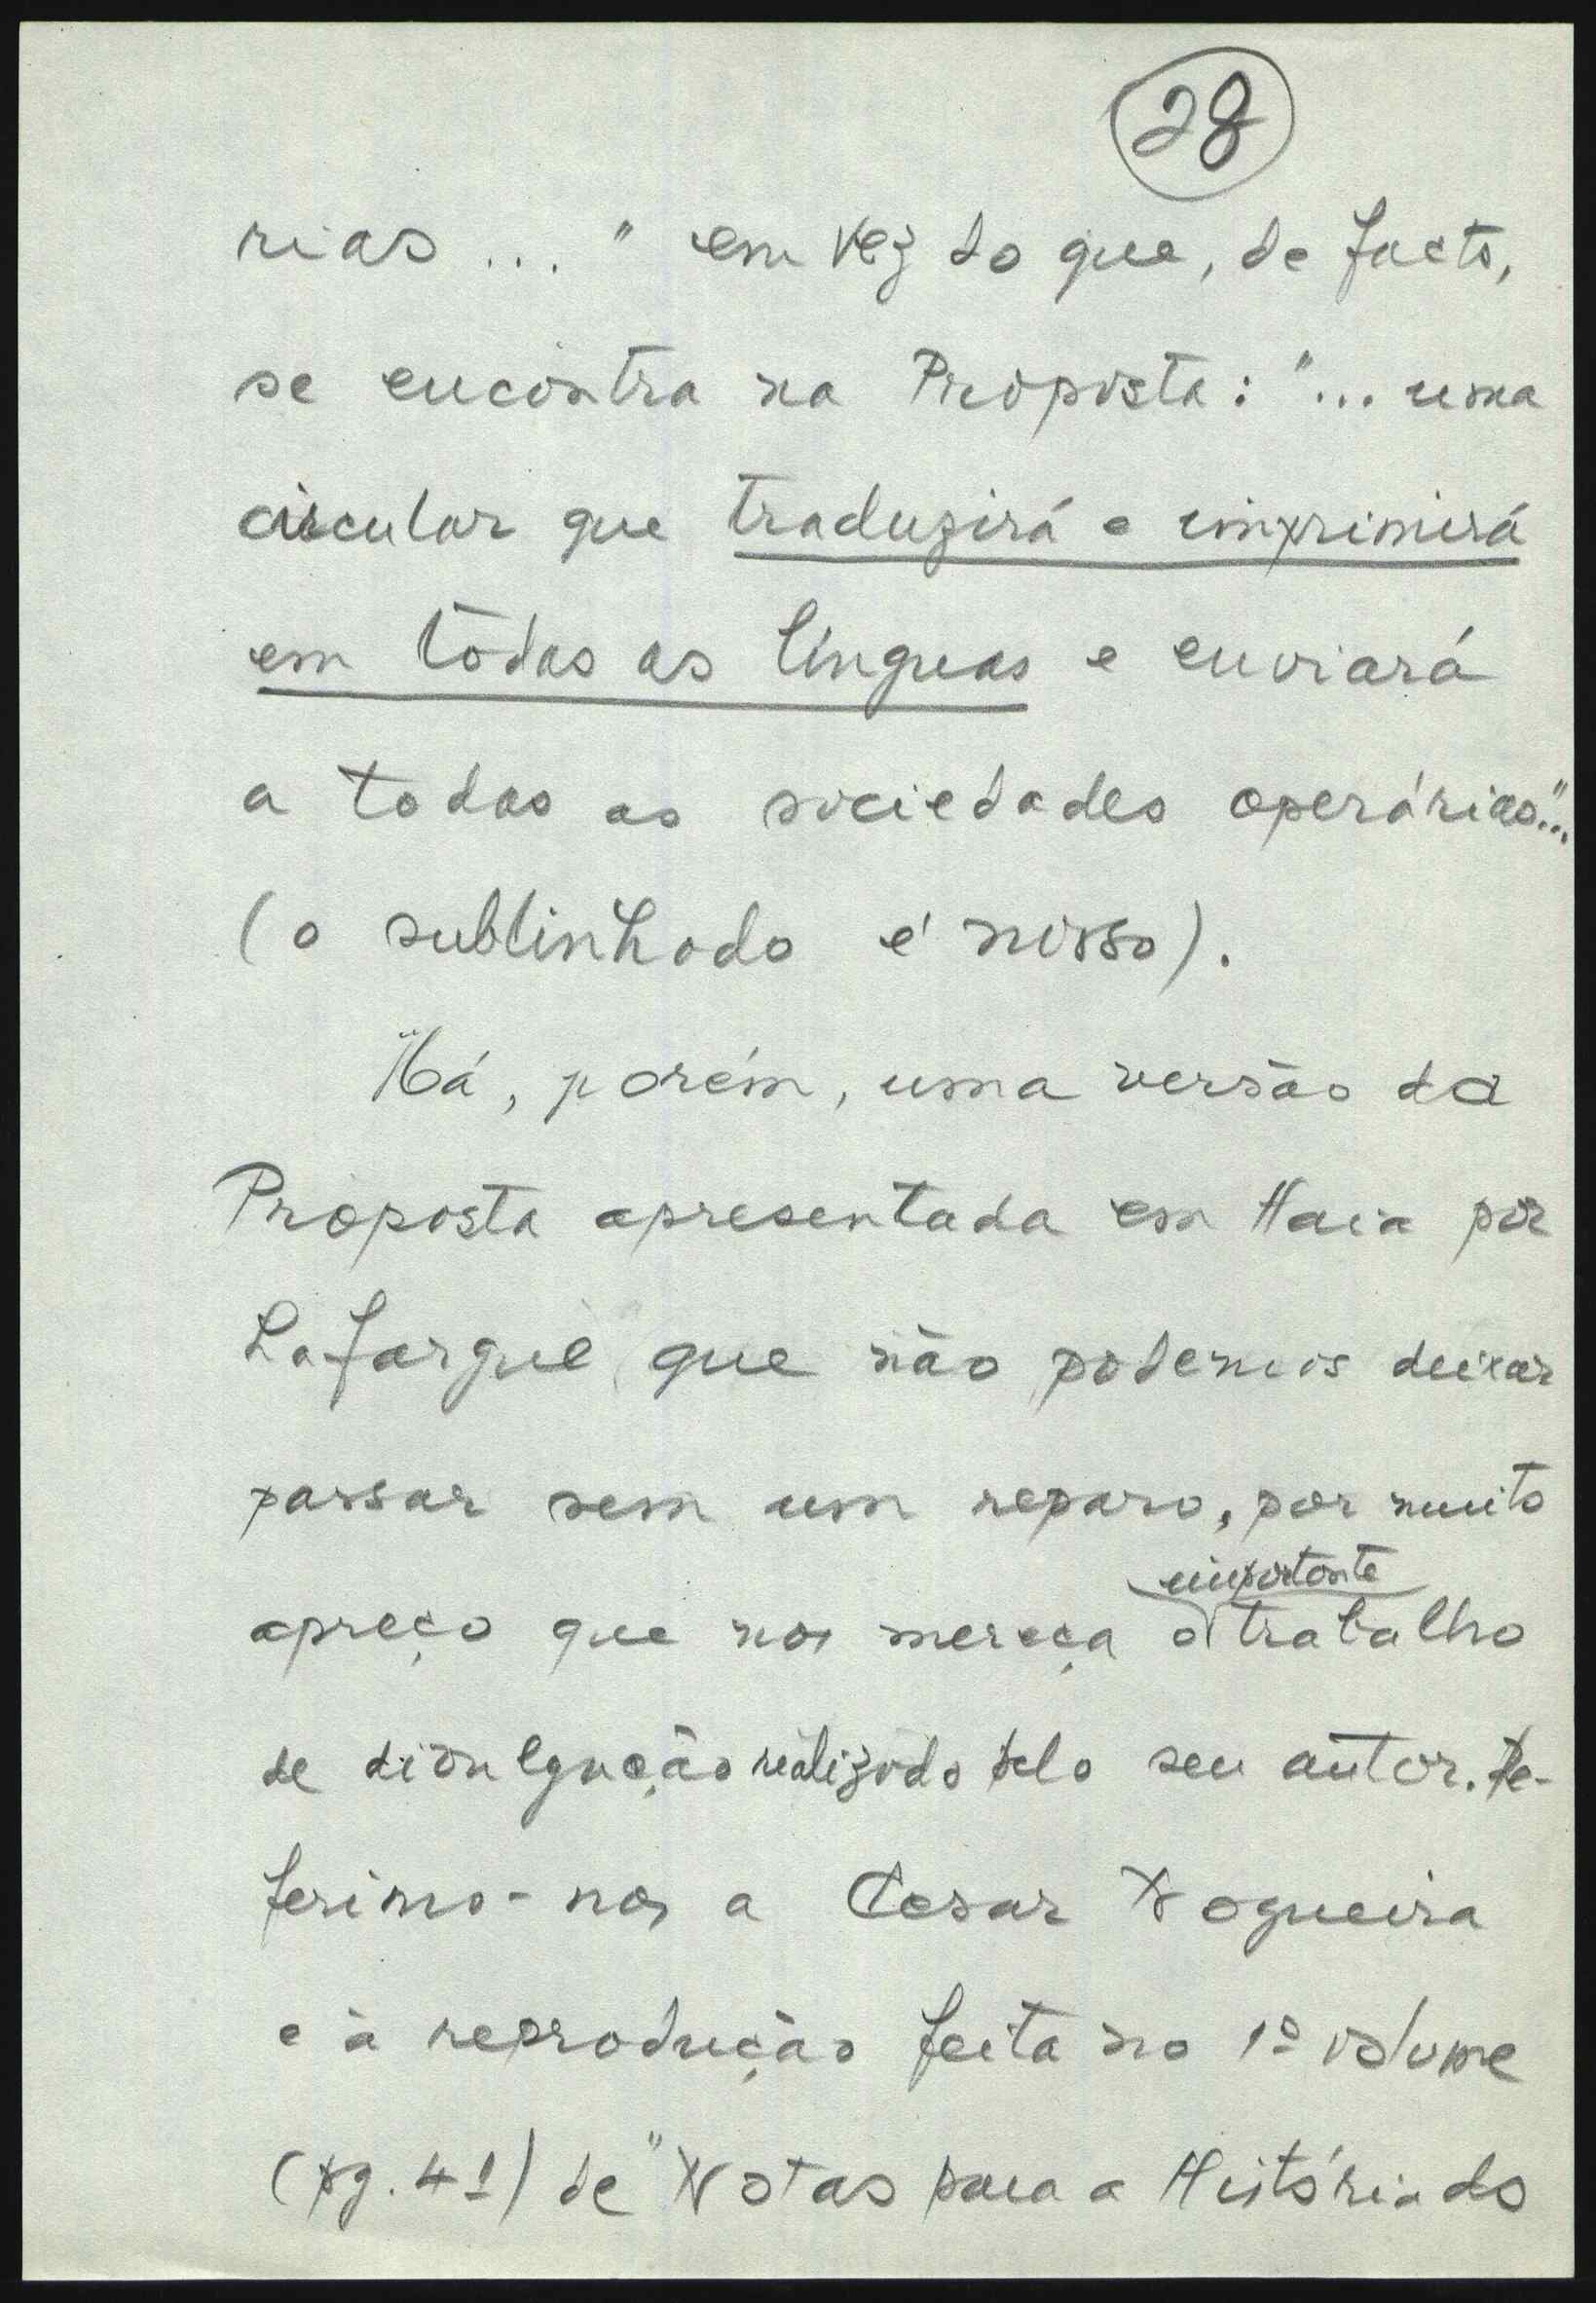 28
rias ... " em vez do que, de facto,
se encontra na Proposta: "... uma
circular que traduzirá e imprimirá
em tôdas as línguas e enviará
a todas as sociedades operárias..."
(o sublinhado é nosso).
Há, porém, uma versão da
Proposta apresentada em Haia por
Lafargue que não podemos deixar
passar sem um reparo, por muito
importante
apreço que nos mereça o trabalho
de divulgação realizado pelo seu autor. Re-
ferimo-nos a Cesar Nogueira
e à reprodução feita no 1º volume
(pg. 41) de "Notas para a História do